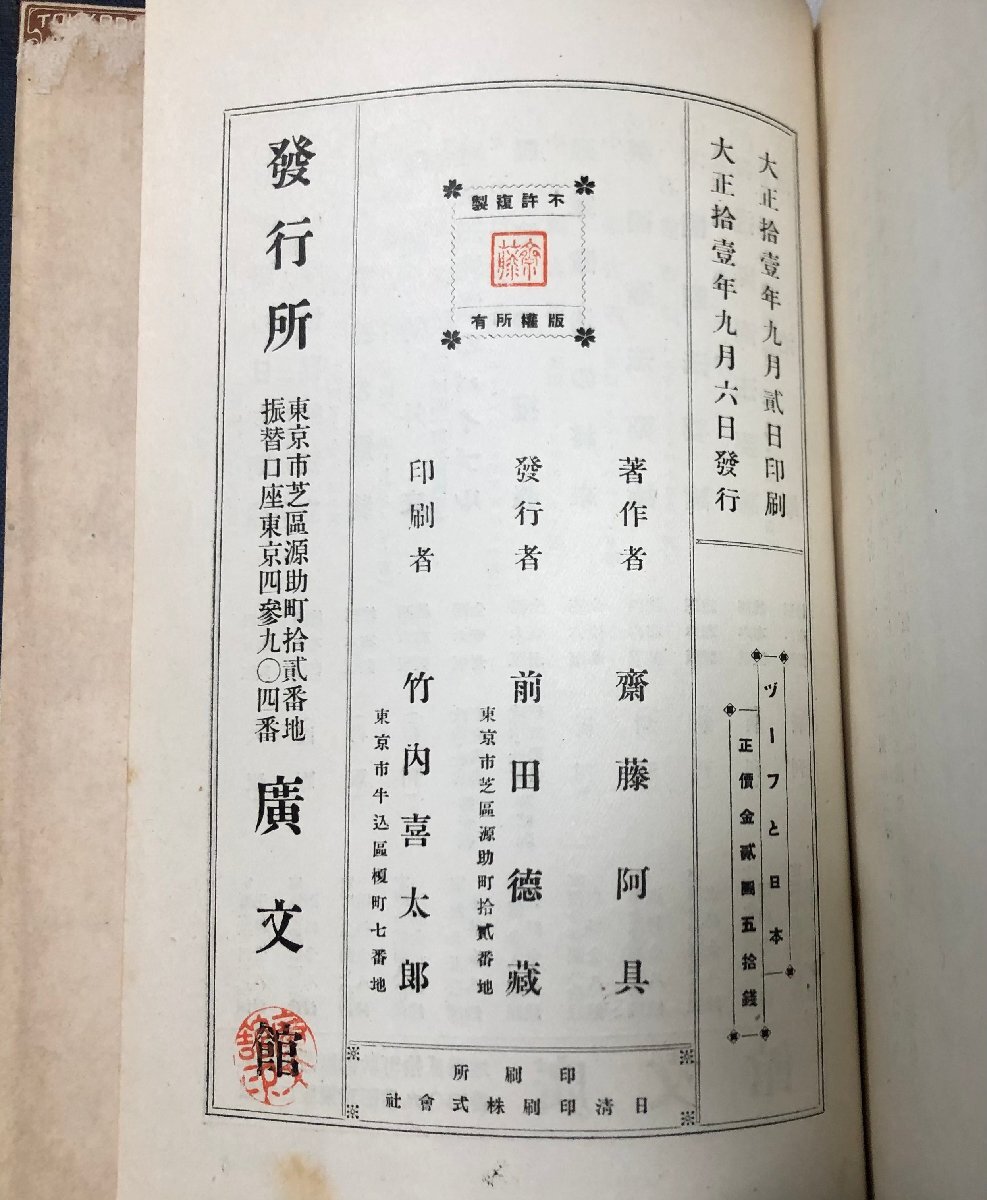 大正拾壹年九月貳日印刷
大正拾壹年九月六日發行
ヅーフと日本
正價金貳圓五拾錢
不許複製
齋藤
版權所有
著作者 齋藤阿具
發行者 前田德藏
東京市芝區源助町拾貳番地
印刷者 竹內喜太郎
東京市牛込區榎町七番地
印刷所
日淸印刷株式會社
發行所
東京市芝區源助町拾貳番地
振替口座東京四參九〇四番
廣文館